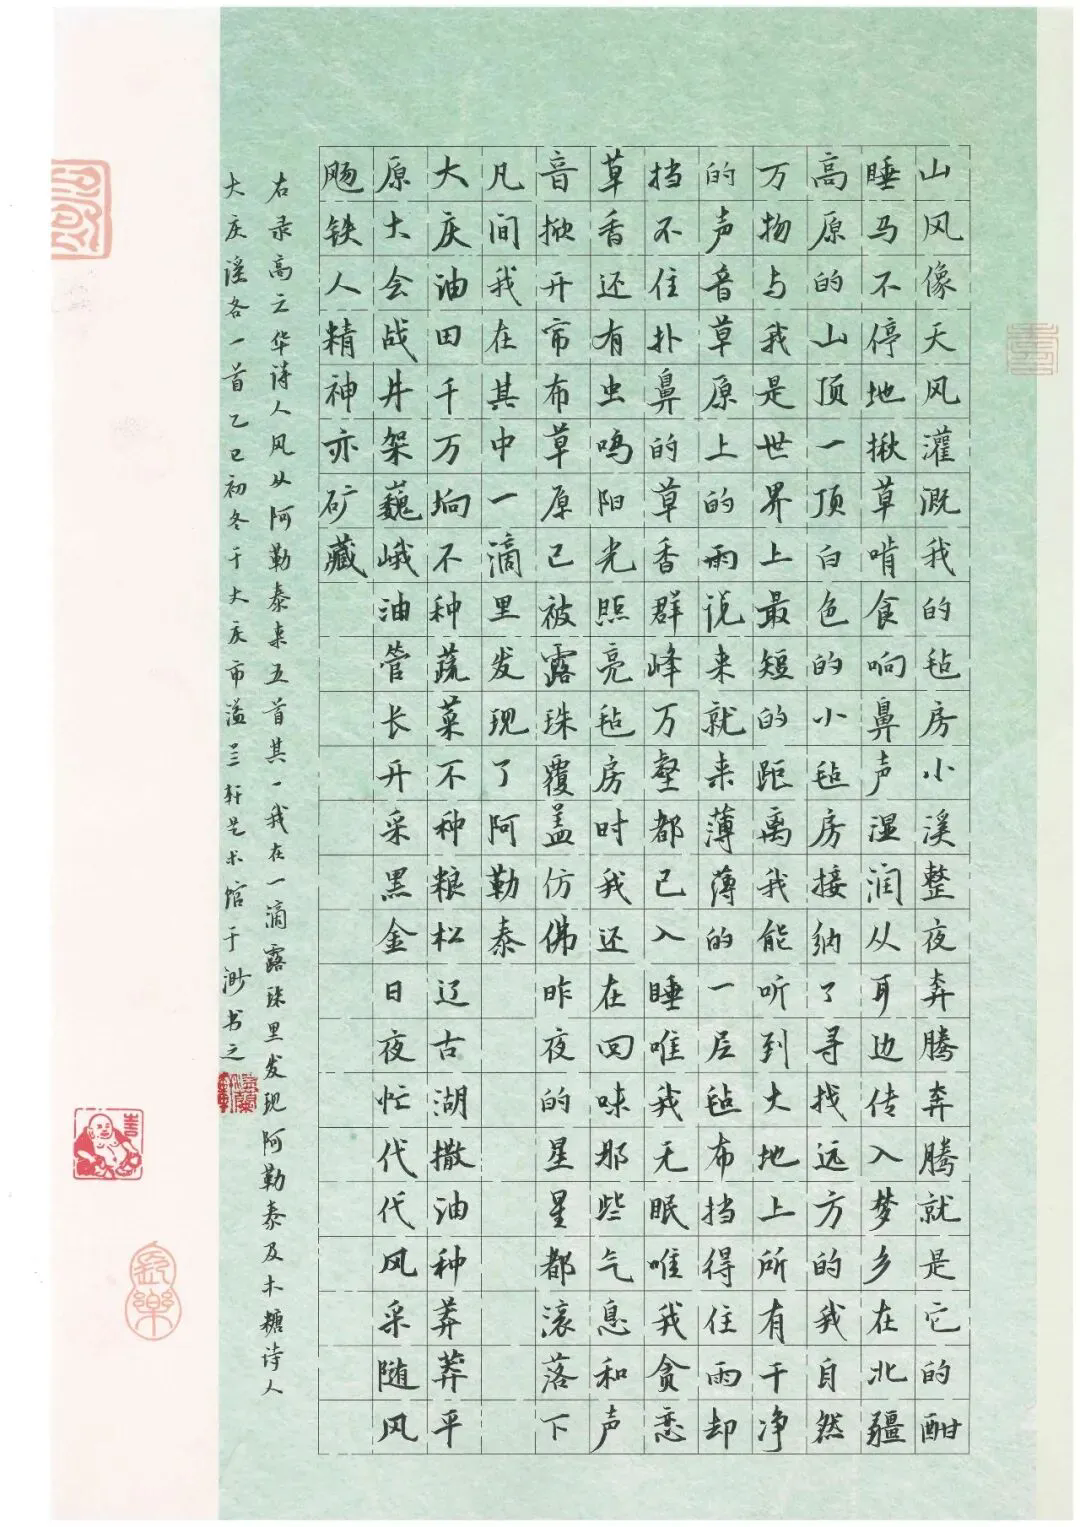 山风像天风灌溉我的毡房小溪整夜奔腾奔腾就是它的酣
睡马不停地揪草啃食响鼻声湿润从耳边传入梦乡在北疆
高原的山顶一顶白色的小毡房接纳了寻找远方的我自然
万物与我是世界上最短的距离我能听到大地上所有干净
的声音草原上的雨说来就来薄薄的一层毡布挡得住雨却
挡不住扑鼻的草香群峰万壑都已入睡唯我无眠唯我贪恋
草香还有虫鸣阳光照亮毡房时我还在回味那些气息和声
音掀开帘布草原已被露珠覆盖仿佛昨夜的星星都滚落下
凡间我在其中一滴里发现了阿勒泰
大庆油田千万垧不种蔬菜不种粮松辽古湖撒油种莽莽平
原大会战井架巍峨油管长开采黑金日夜忙代代风采随风
飏铁人精神亦矿藏
右录高云华诗人风从阿勒泰来五首其一我在一滴露珠里发现阿勒泰及木糖诗人
大庆谣各一首乙巳初冬于大庆市溢兰轩艺术馆于渺书之